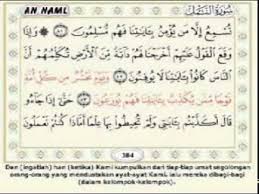 AN NAML سُورَةُ النَّمْلِ
تُسْمِعُ إِلَّا مَن يُؤْمِنُ بِـَٔايَـٰتِنَا فَهُم مُّسْلِمُونَ ٨١ ۞ وَإِذَا
وَقَعَ ٱلْقَوْلُ عَلَيْهِمْ أَخْرَجْنَا لَهُمْ دَآبَّةً مِّنَ ٱلْأَرْضِ تُكَلِّمُهُمْ أَنَّ
ٱلنَّاسَ كَانُوا۟ بِـَٔايَـٰتِنَا لَا يُوقِنُونَ ٨٢ وَيَوْمَ نَحْشُرُ مِن كُلِّ أُمَّةٍ
فَوْجًا مِّمَّن يُكَذِّبُ بِـَٔايَـٰتِنَا فَهُمْ يُوزَعُونَ ٨٣ حَتَّىٰٓ إِذَا جَآءُو
قَالَ أَكَذَّبْتُم بِـَٔايَـٰتِى وَلَمْ تُحِيطُوا۟ بِهَا عِلْمًا أَمَّاذَا كُنتُمْ تَعْمَلُونَ
384
Dan (ingatlah) hari (ketika) Kami kumpulkan dari tiap-tiap umat segolongan
orang-orang yang mendustakan ayat-ayat Kami, lalu mereka dibagi-bagi
(dalam kelompok-kelompok).